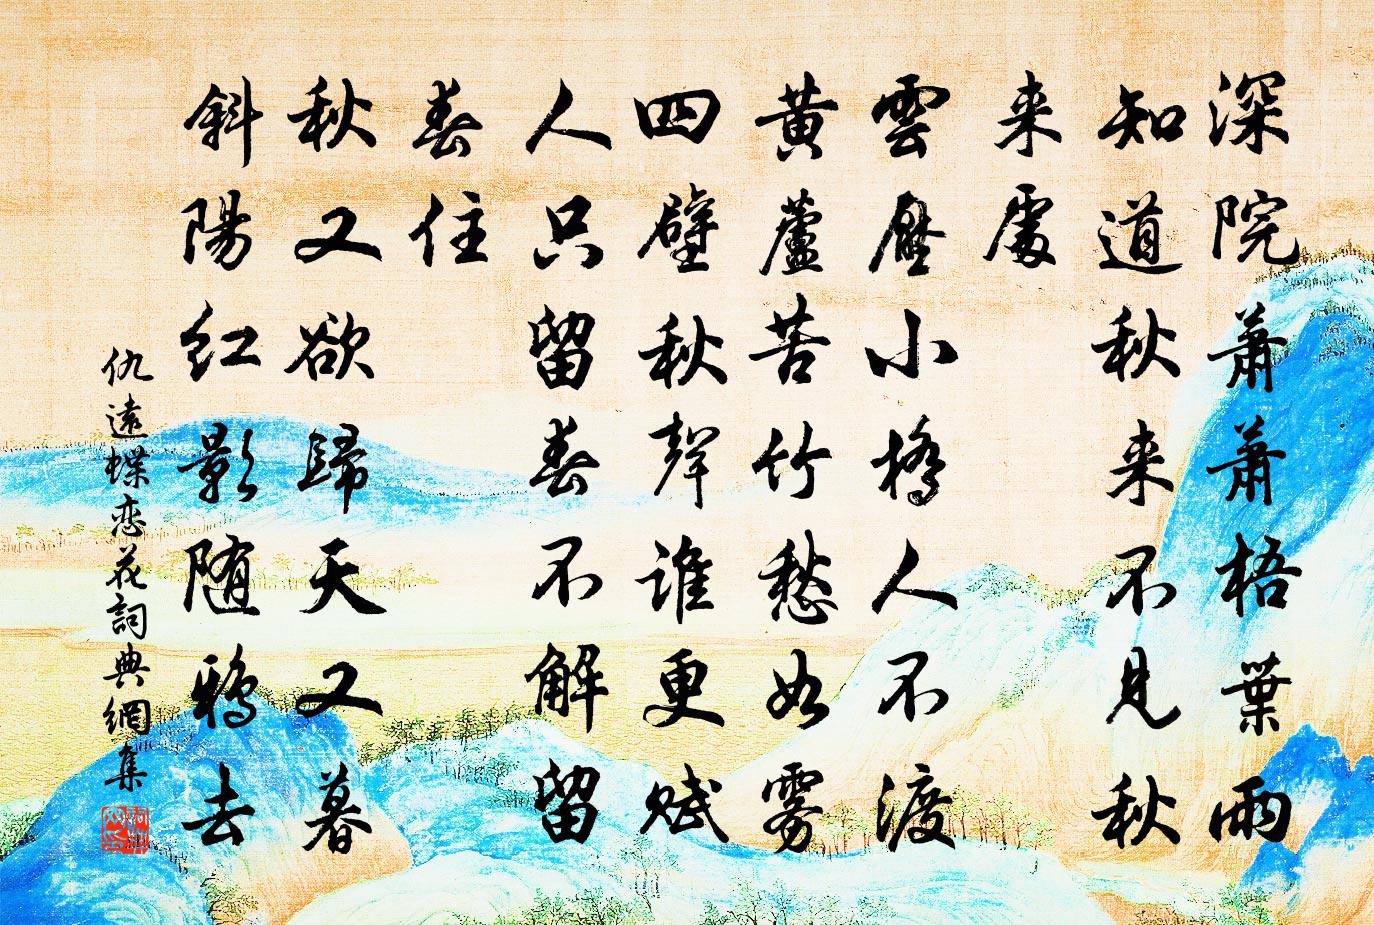 深院蕭蕭梧葉雨
知道秋来不見秋
来處
雲壓小橋人不渡
黃蘆苦竹愁如霧
四壁秋聲誰更賦
人只留春不解留
春住
秋又欲歸天又暮
斜陽紅影随鴉去
仇遠蝶恋花詞典網集